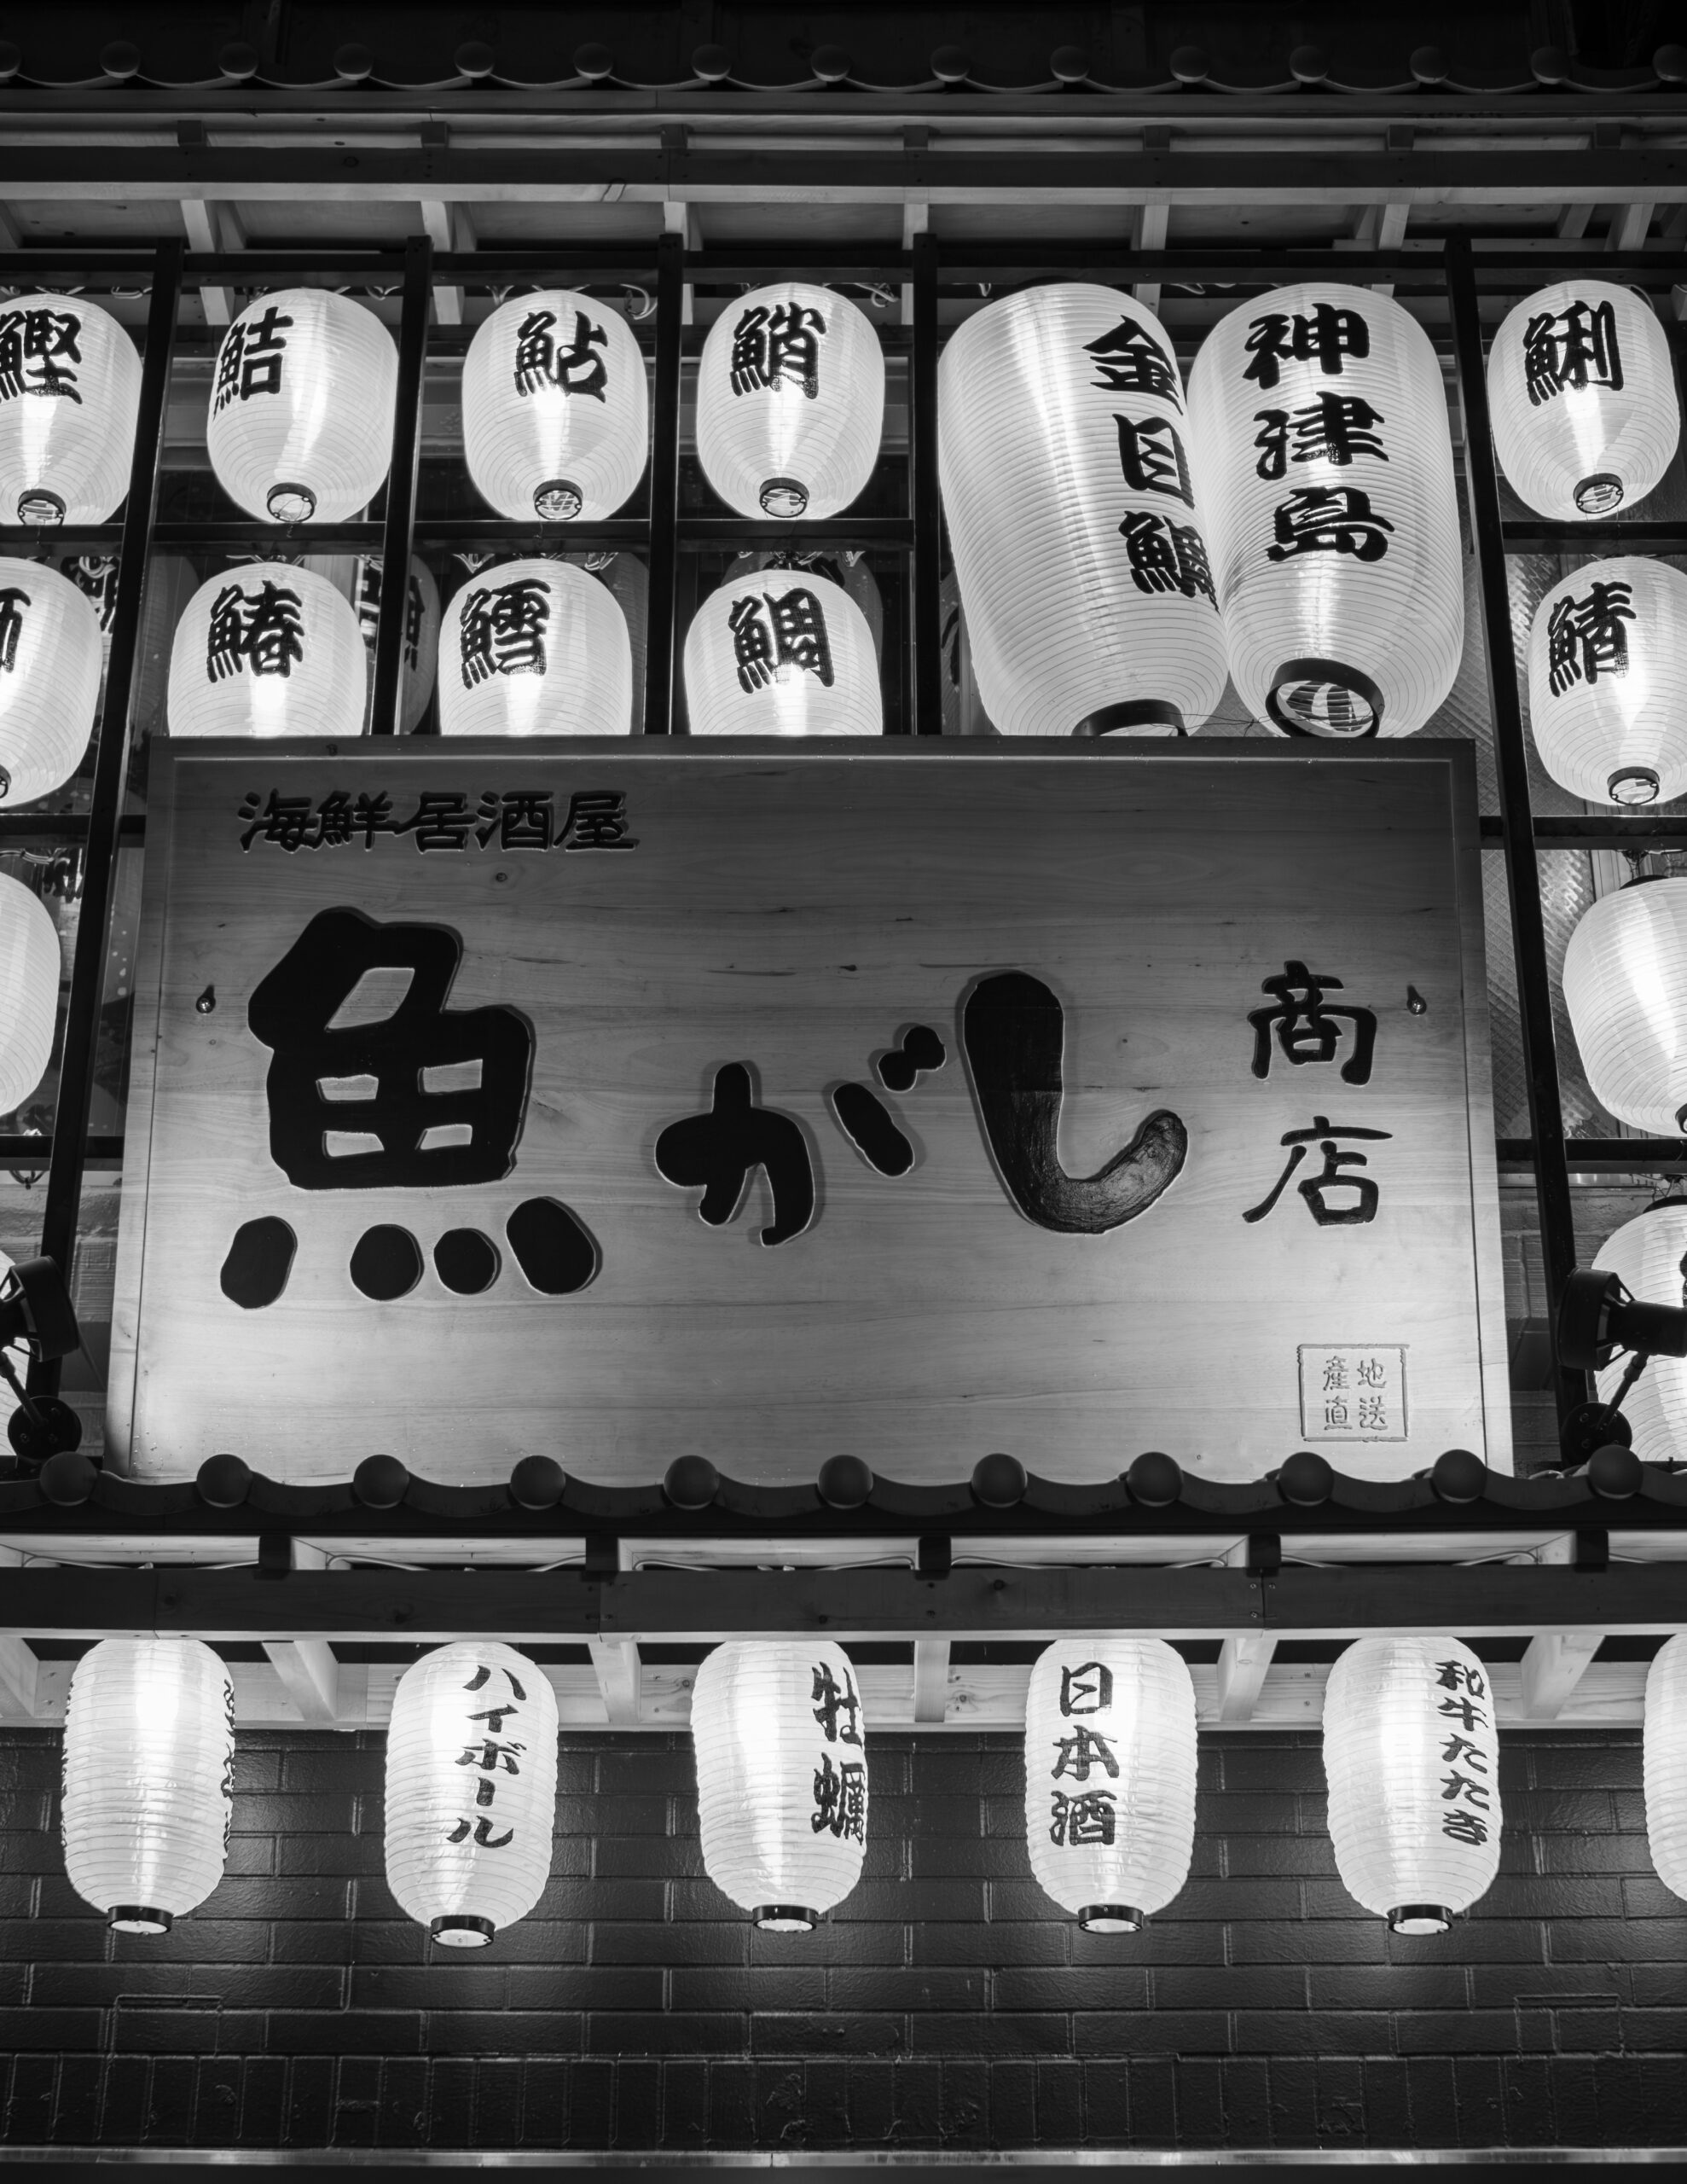 鰹
鮚
鮎
鮹
金目鯛
神津島
鯏
鰆
鱈
鯛
鯖
海鮮居酒屋
魚がし
商店
産地
直送
ハイボール
牡蠣
日本酒
和牛たたき